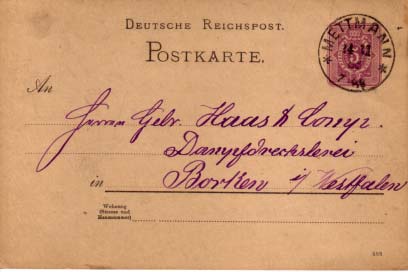 DEUTSCHE REICHSPOST.
POSTKARTE.
METTMANN
5
An
Herrn Gebr. Haas & Comp.
Dampfdrechslerei
in Borken i/Westfalen
Wohnung
(Strasse und
Hausnummer)